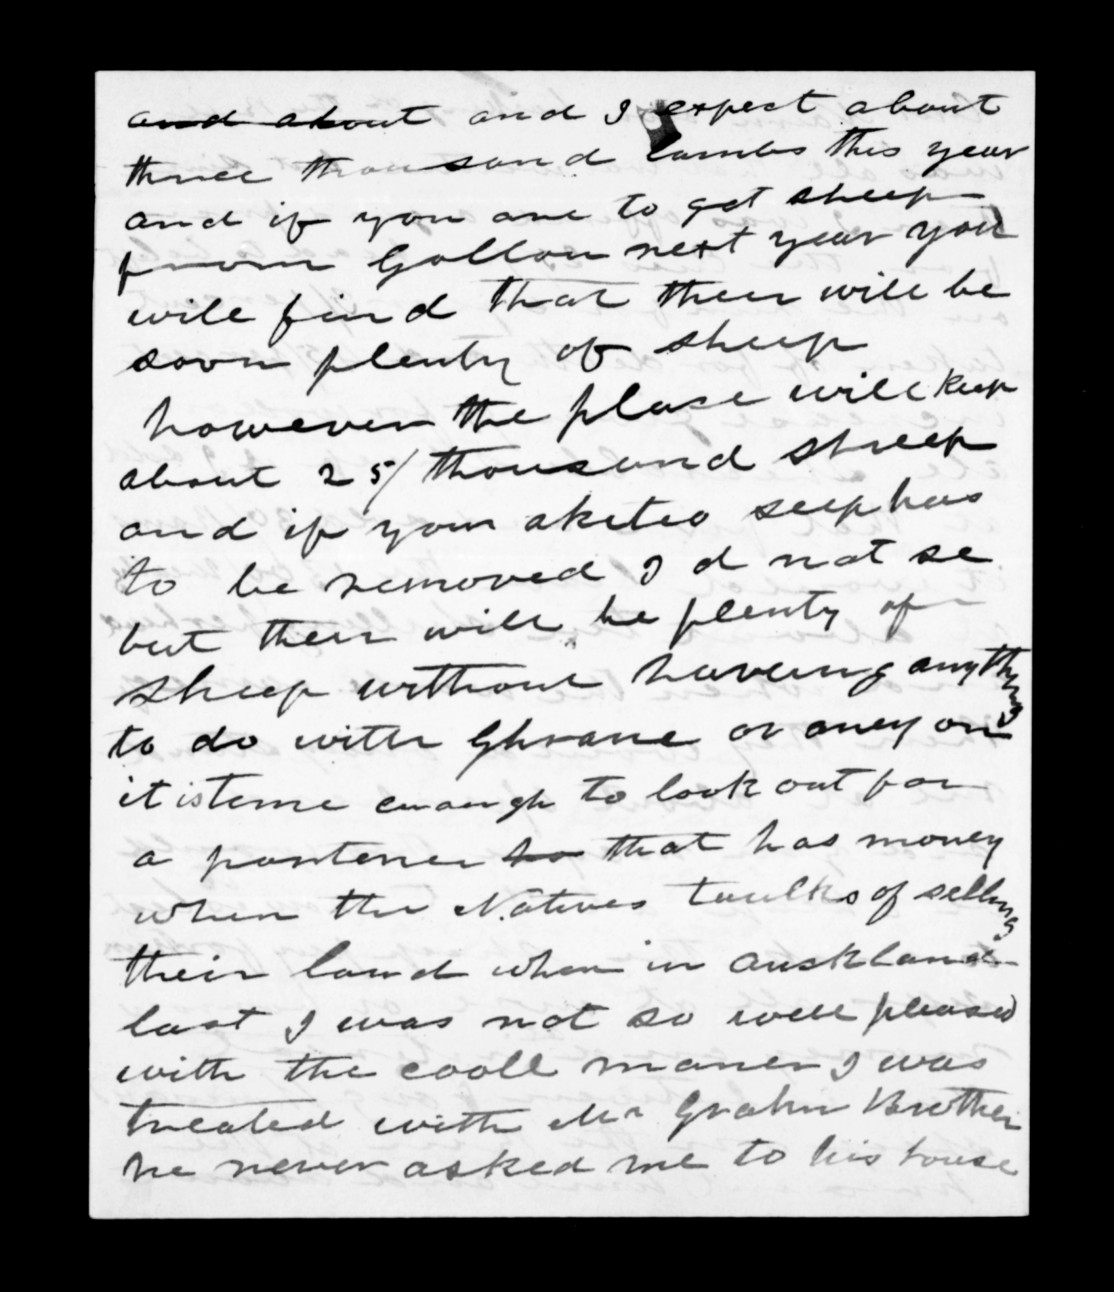 and about and I expect about
three thousand lambs this year
and if you are to get sheep
from Gollon next year you
will find that their will be
soon plenty of sheep
however the place will keep
about 25/ thousand sheep
and if your akiteo seep has
to be removed I d not se
but their will be plenty of
sheep without haveing anything
to do with Ghrane or aney one
it is teme enough to look out for
a partener ho that has money
when the Natives taulks of selling
their land when in auskland
last I was not so well pleased
with the cooll maner I was
treated with Mr Grahm Brother
he never asked me to his house